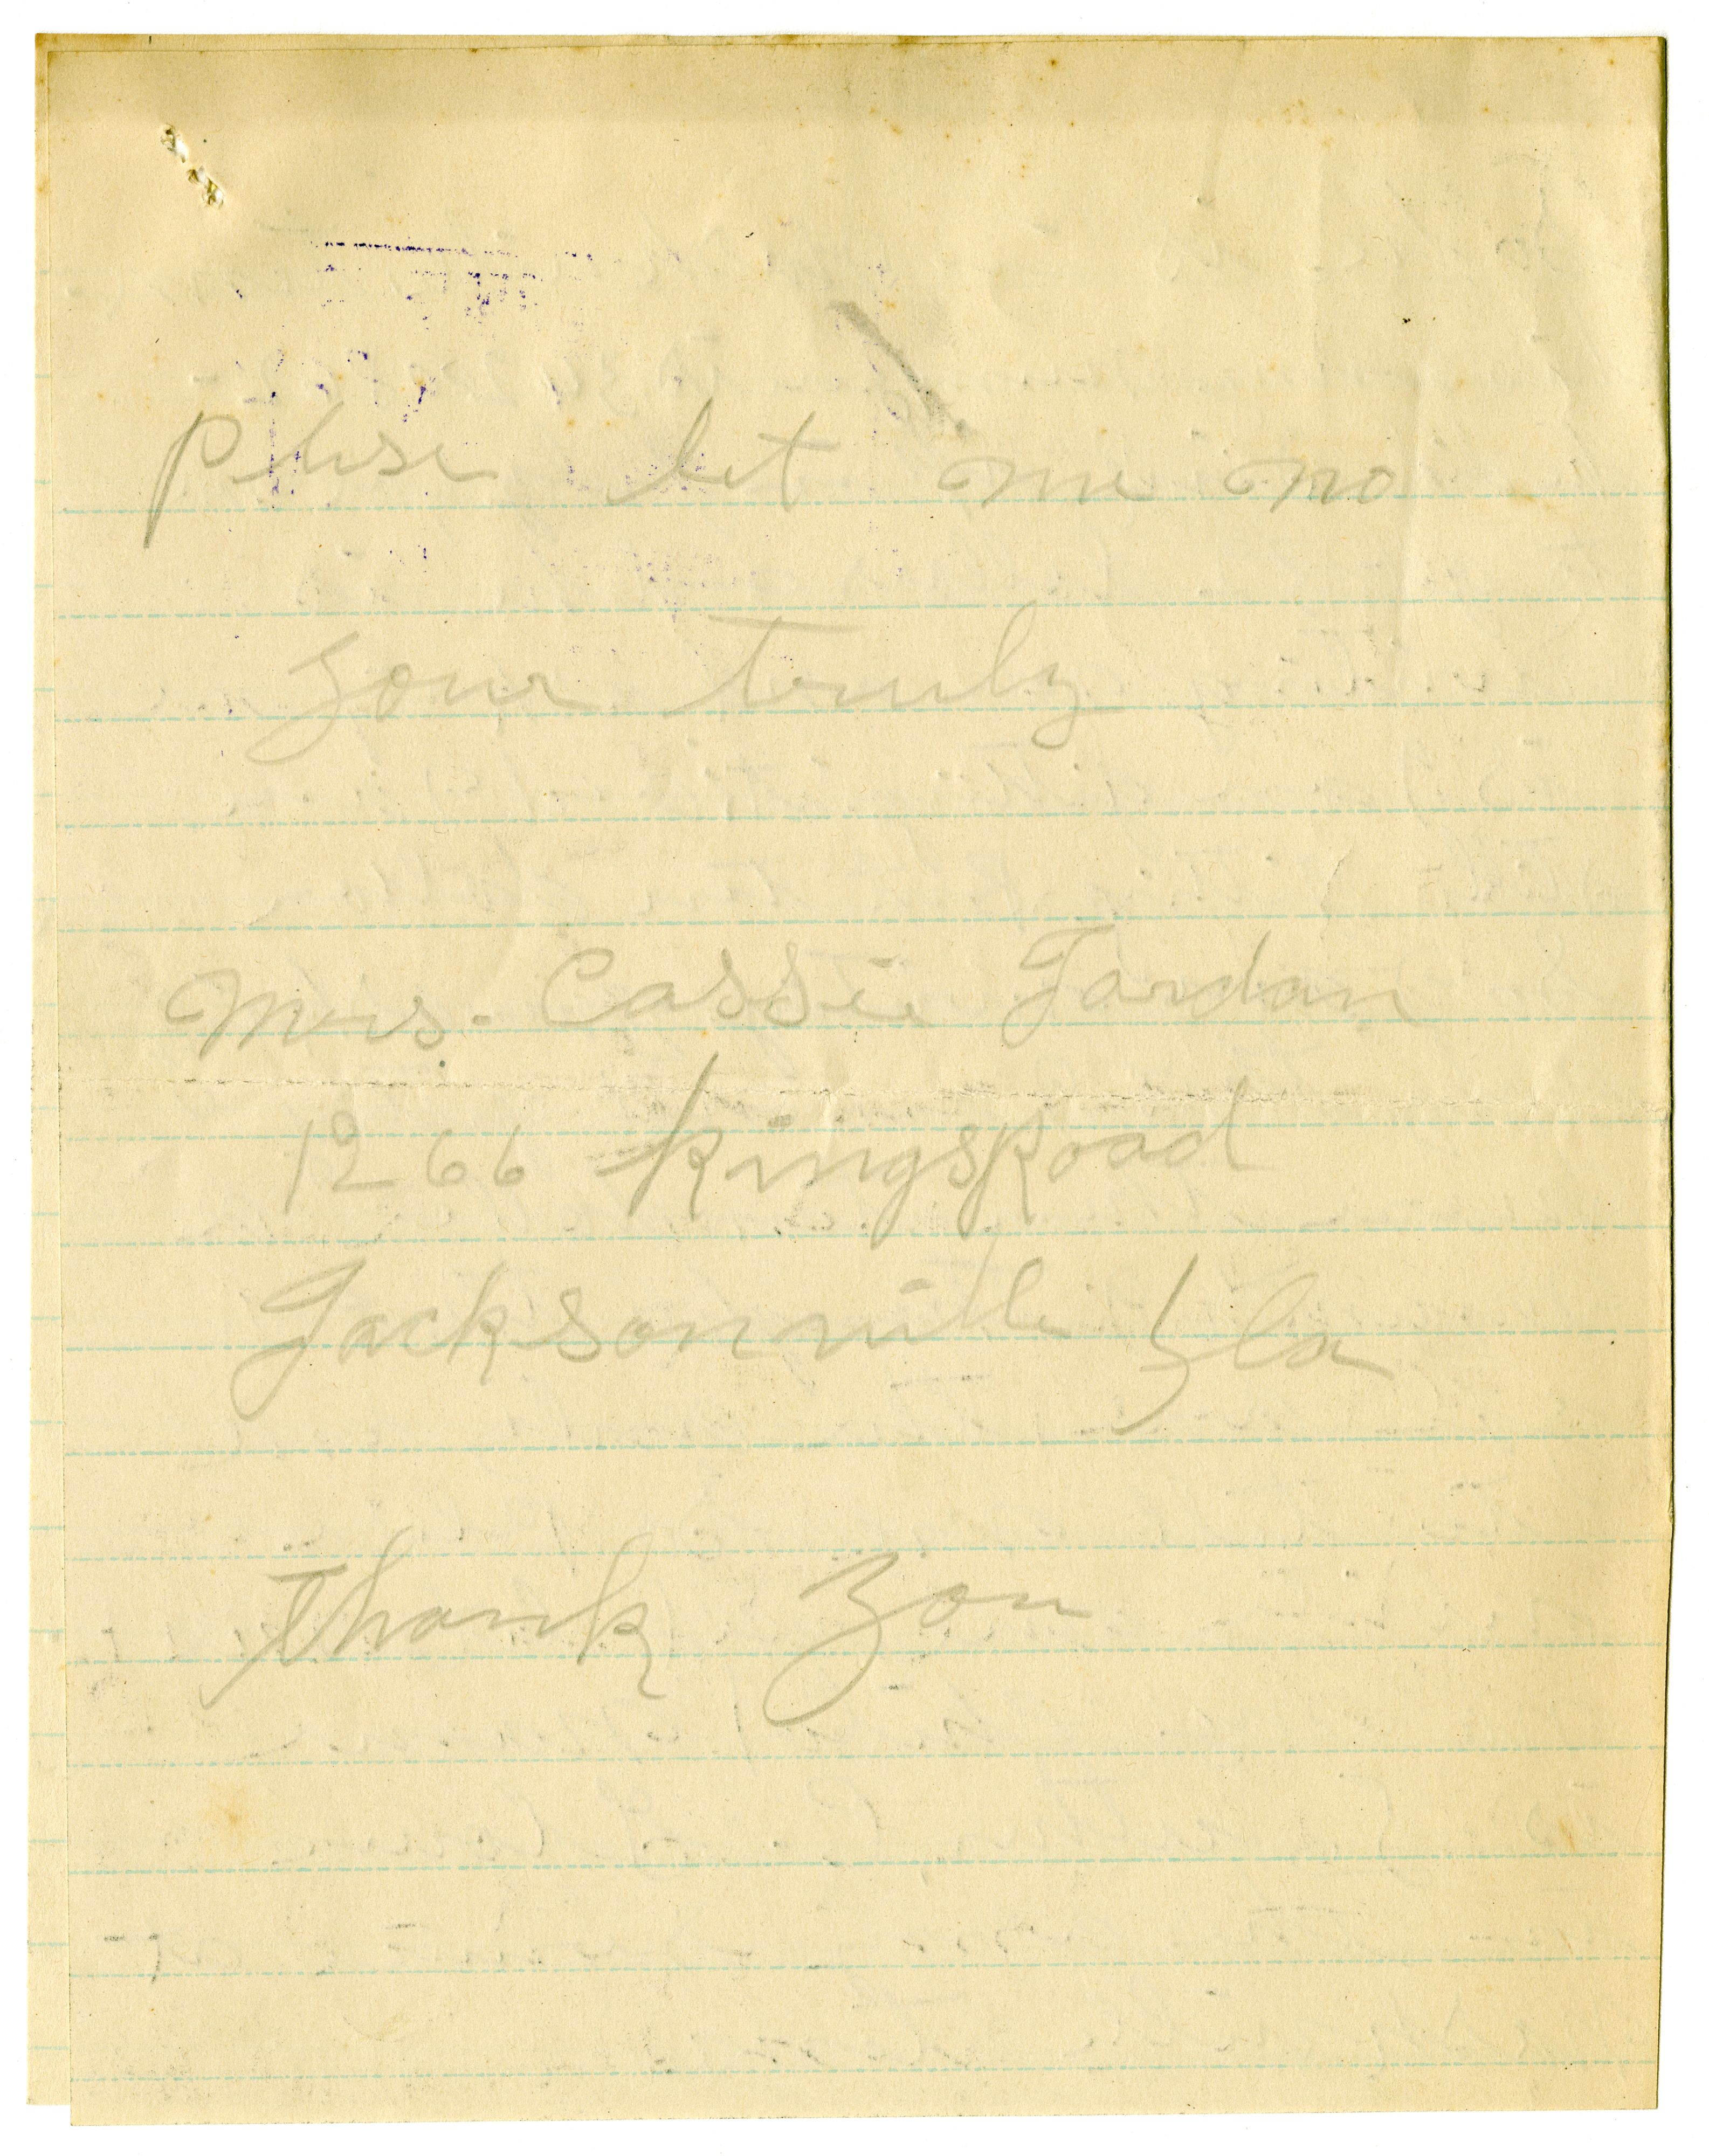 Plese let me no
your truly
Mrs. Cassie Jordan
1266 Kings Road
Jacksonville Fla
Thank you